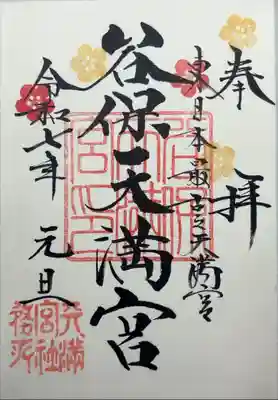 奉拝
東日本最古之天満宮
谷保天満宮
令和七年 元旦
天満宮社務所